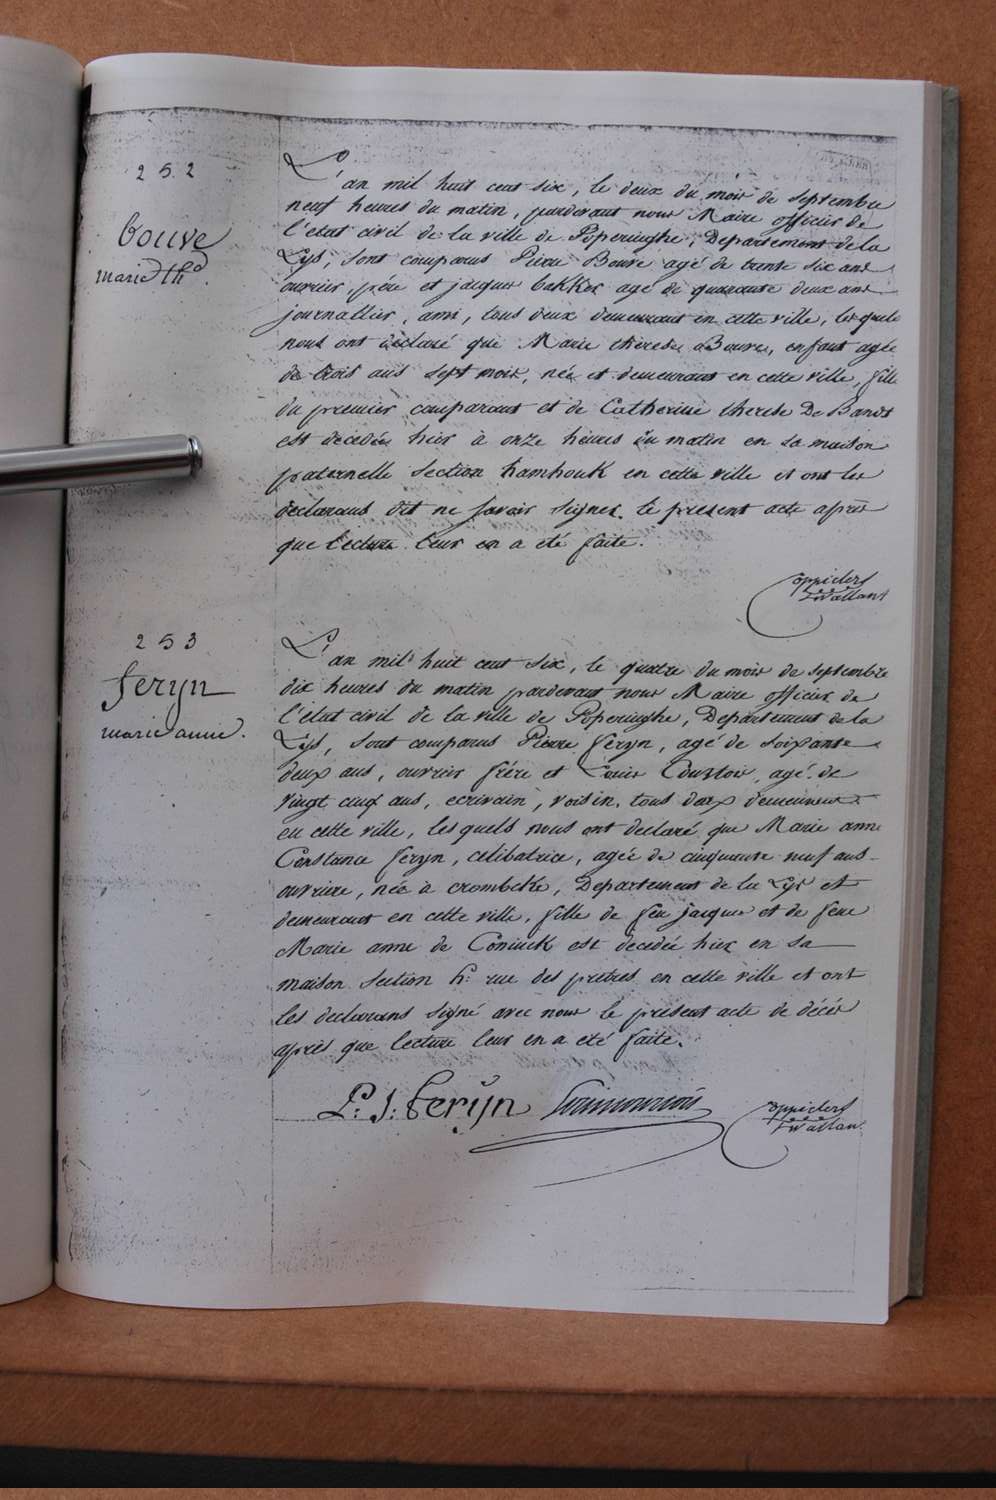 252
Bouve
marie thd.
L'an mil huit cent six, le deux du mois de septembre
neuf heures du matin, pardevant nous Maire officier de
l'état civil de la ville de Poperinghe, Departement de la
Lys, sont comparus Pierre Bouve agé de trente six ans
ouvrier, pére et jacques bakker agé de quarante deux ans
journallier, ami, tous deux demeurant en cette ville, lesquels
nous ont déclaré que Marie therese Bouve, enfant agée
de trois ans sept mois, née et demeurant en cette ville, fille
du premier comparant et de Catherine therese De Bandt
est decedée hier à onze heures du matin en sa maison
paternelle section hamhouk en cette ville et ont les
declarans dit ne savoir signer le present acte après
que lecture leur en a été faite.
oppiders
253
feryn
marie anne.
L'an mil huit cent six, le quatre du mois de septembre
dix heures du matin pardevant nous Maire officier de
l'etat civil de la ville de Poperinghe, Departement de la
Lys, sont comparus Pierre feryn, agé de soixante
deux ans, ouvrier frére et Louis agé de
vingt cinq ans, ecrivain, voisin, tous deux demeurant
en cette ville, lesquels nous ont declaré que Marie anne
Constance feryn, celibatrice, agée de cinquante neuf ans
ouvriere, née à crombeke, Departement de la Lys et
demeurant en cette ville, fille de feu jacques et de feue
Marie anne de Coninck est decedée hier en sa
maison section h: rue des pretres en cette ville et ont
les declarans signé avec nous le présent acte de décès
après que lecture leur en a été faite.
P: J: feryn oppiders